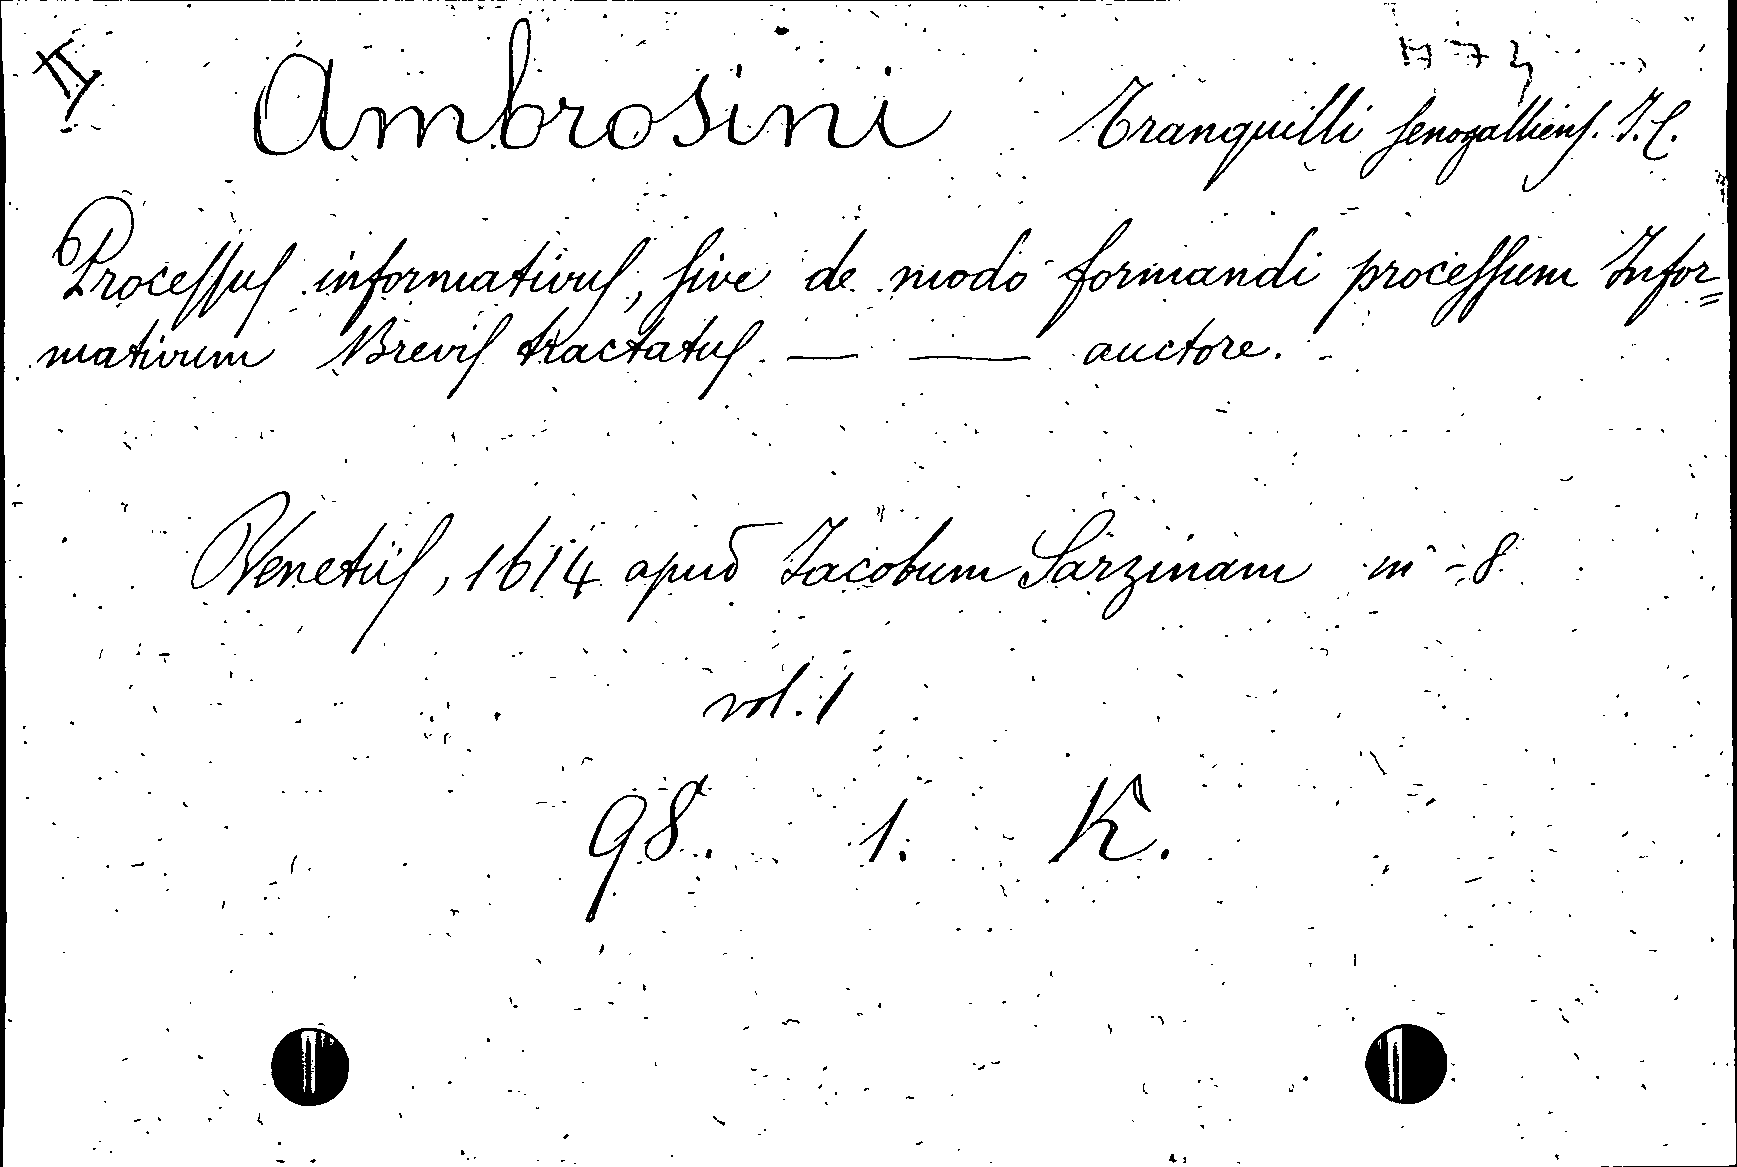 II
Ambrosini Tranquilli senogalliens. J. C.
Processus informativus, sive de modo formandi processum Infor=
mativum Brevis tractatus — — auctore.
Venetiis, 1614 apud Jacobum Sarzinam in-8
vol. 1
98. 1. K.